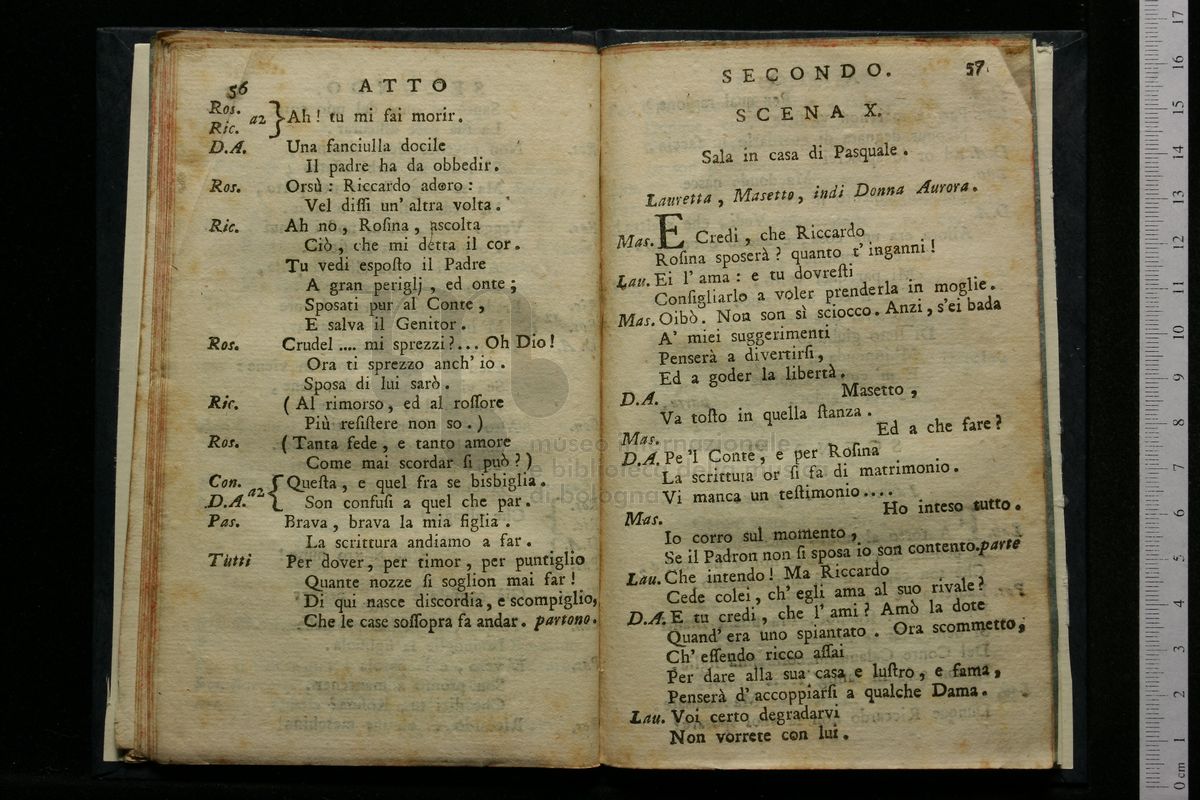 56 ATTO
Ros. Ric. a2 } Ah! tu mi fai morir.
D.A. Una fanciulla docile
Il padre ha da obbedir.
Ros. Orsù: Riccardo adoro:
Vel dissi un' altra volta.
Ric. Ah nò, Rosina, ascolta
Ciò, che mi detta il cor.
Tu vedi esposto il Padre
A gran periglj, ed onte;
Sposati pur al Conte,
E salva il Genitor.
Ros. Crudel .... mi sprezzi?... Oh Dio!
Ora ti sprezzo anch' io.
Sposa di lui sarò.
Ric. (Al rimorso, ed al rossore
Più resistere non so.)
Ros. (Tanta fede, e tanto amore
Come mai scordar si può?)
Con. D.A. a2 { Questa, e quel fra se bisbiglia.
Son confusi a quel che par.
Pas. Brava, brava la mia figlia.
La scrittura andiamo a far.
Tutti Per dover, per timor, per puntiglio
Quante nozze si soglion mai far!
Di qui nasce discordia, e scompiglio,
Che le case sossopra fa andar. partono.
SECONDO. 57
SCENA X.
Sala in casa di Pasquale.
Lauretta, Masetto, indi Donna Aurora.
Mas. E Credi, che Riccardo
Rosina sposerà? quanto t' inganni!
Lau. Ei l' ama: e tu dovresti
Consigliarlo a voler prenderla in moglie.
Mas. Oibò. Non son sì sciocco. Anzi, s'ei bada
A' miei suggerimenti
Penserà a divertirsi,
Ed a goder la libertà.
D.A. Masetto,
Va tosto in quella stanza.
Mas. Ed a che fare?
D.A. Pe 'l Conte, e per Rosina
La scrittura or si fa di matrimonio.
Vi manca un testimonio....
Mas. Ho inteso tutto.
Io corro sul momento,
Se il Padron non si sposa io son contento. parte
Lau. Che intendo! Ma Riccardo
Cede colei, ch' egli ama al suo rivale?
D.A. E tu credi, che l' ami? Amò la dote
Quand' era uno spiantato. Ora scommetto,
Ch' essendo ricco assai
Per dare alla sua casa e lustro, e fama,
Penserà d' accoppiarsi a qualche Dama.
Lau. Voi certo degradarvi
Non vorrete con lui.
museo internazionale
e biblioteca della musica
di bologna
0 cm 1 2 3 4 5 6 7 8 9 10 11 12 13 14 15 16 17